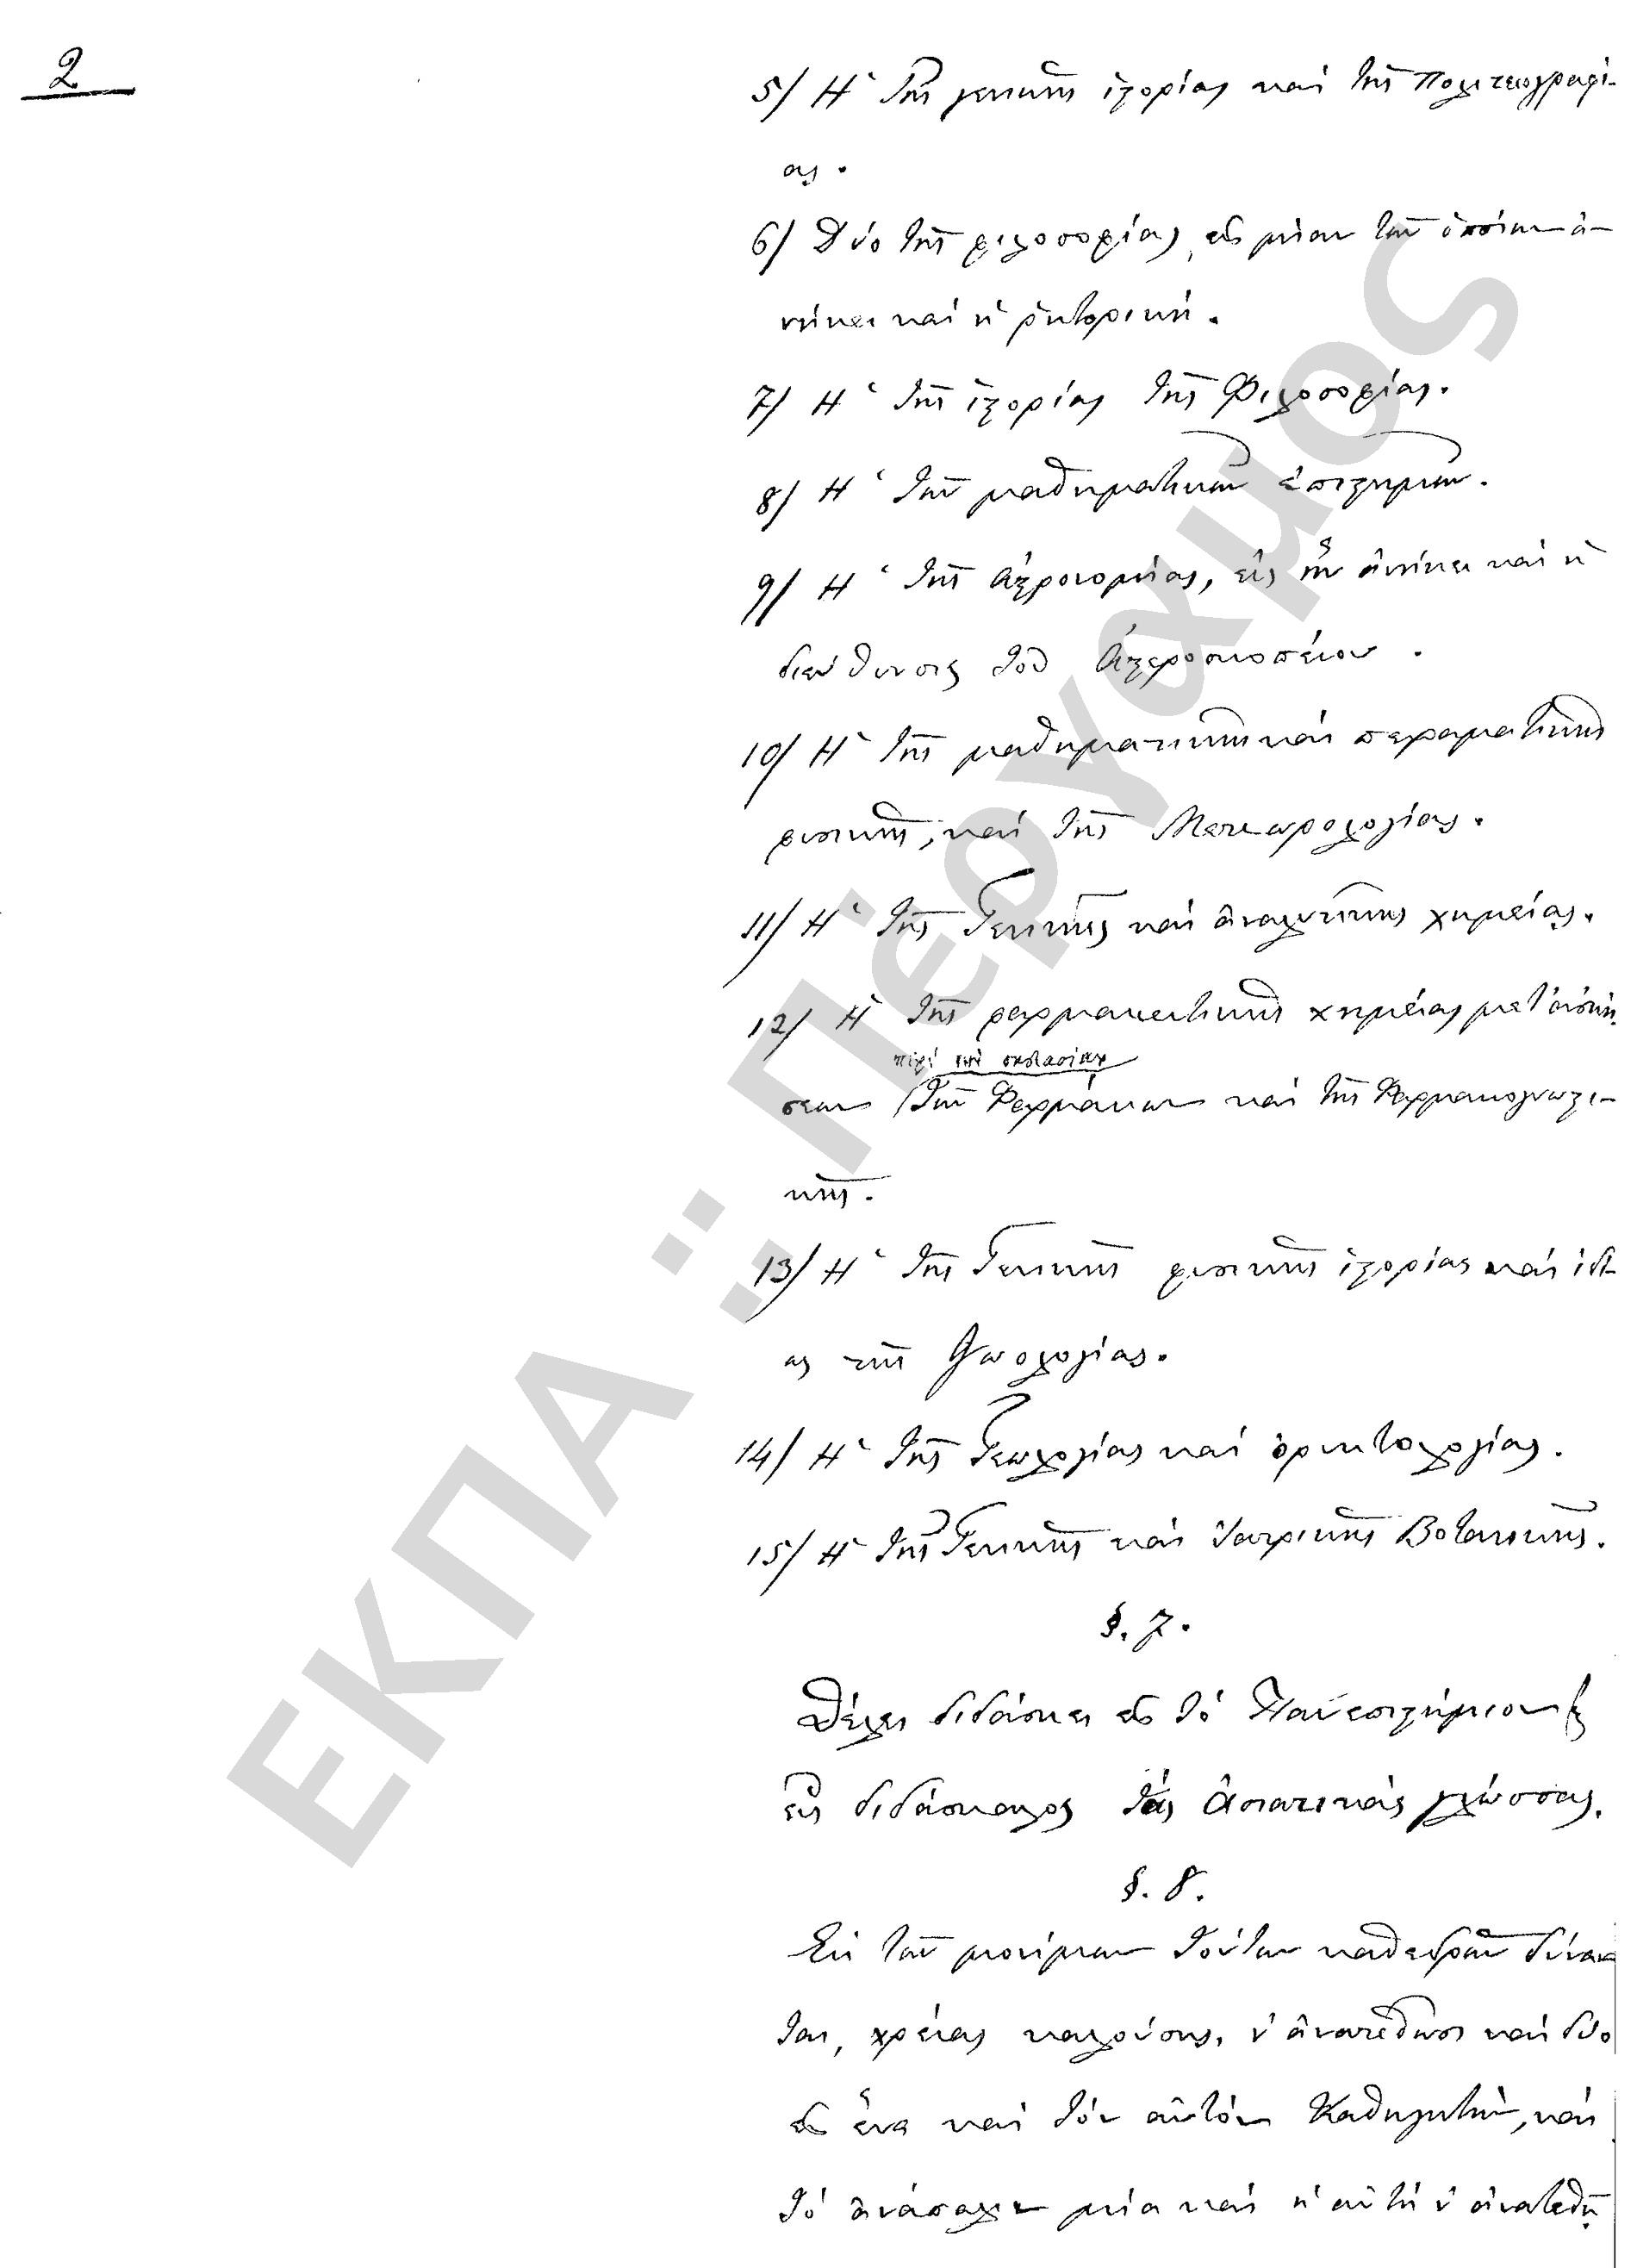 2
5/ Ἡ τῆς γενικῆς ἱστορίας καὶ τῆς Πολιτειογραφί-
ας.
6/ Δύο τῆς φιλοσοφίας, εἰς μίαν τῶν ὁποίων ἀ-
νήκει καὶ ἡ ῥητορική.
7/ Ἡ τῆς ἱστορίας τῆς Φιλοσοφίας.
8/ Ἡ τῶν μαθηματικῶν ἐπιστημῶν.
9/ Ἡ τῆς Ἀστρονομίας, εἰς ἣν ἀνήκει καὶ ἡ
διεύθυνσις τοῦ Ἀστεροσκοπείου.
10/ Ἡ τῆς μαθηματικῆς καὶ πειραματικῆς
φυσικῆς, καὶ τῆς Μετεωρολογίας.
11/ Ἡ τῆς Γενικῆς καὶ ἀναλυτικῆς χημείας.
12/ Ἡ τῆς φαρμακευτικῆς χημείας μετ' ἀσκή-
περὶ τὴν σκευασίαν
σεων τῶν Φαρμάκων καὶ τῆς Φαρμακογνωστι-
κῆς.
13/ Ἡ τῆς Γενικῆς φυσικῆς ἱστορίας καὶ ἰδί-
ας τῆς Ζωολογίας.
14/ Ἡ τῆς Γεωλογίας καὶ ὀρυκτολογίας.
15/ Ἡ τῆς Γενικῆς καὶ Ἰατρικῆς Βοτανικῆς.
§. 7.
Θέλει διδάσκει εἰς τὸ Πανεπιστήμιον
εἷς διδάσκαλος τὰς Ἀσιατικὰς γλώσσας.
§. 8.
Ἐκ τῶν μονίμων τούτων καθεδρῶν δύναν
ται, χρείας καλούσης, ν' ἀνατεθῶσι καὶ δύο
εἰς ἕνα καὶ τὸν αὐτὸν Καθηγητὴν, καὶ
τὸ ἀνάπαλιν μία καὶ ἡ αὐτὴ ν' ἀνατεθῇ
ΕΚΠΑ : Πέργαμος